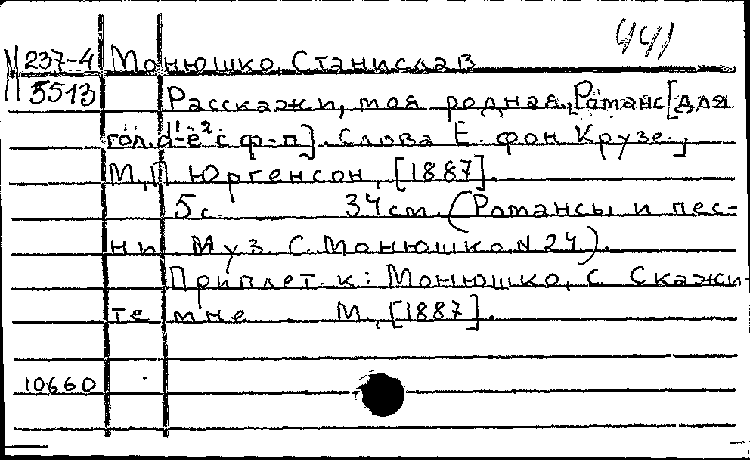 441
М 237-4 Монюшко, Станислав
5513 Расскажи, моя родная. Романс [для
гол. d¹-e² с ф-п]. Слова Е. фон Крузе.
М., П. Юргенсон, [1887].
5 с. 34 см. (Романсы и пес-
ни Муз. С. Монюшко. N 24).
Приплет. к: Монюшко, С. Скажи-
те мне М., [1887].
10660